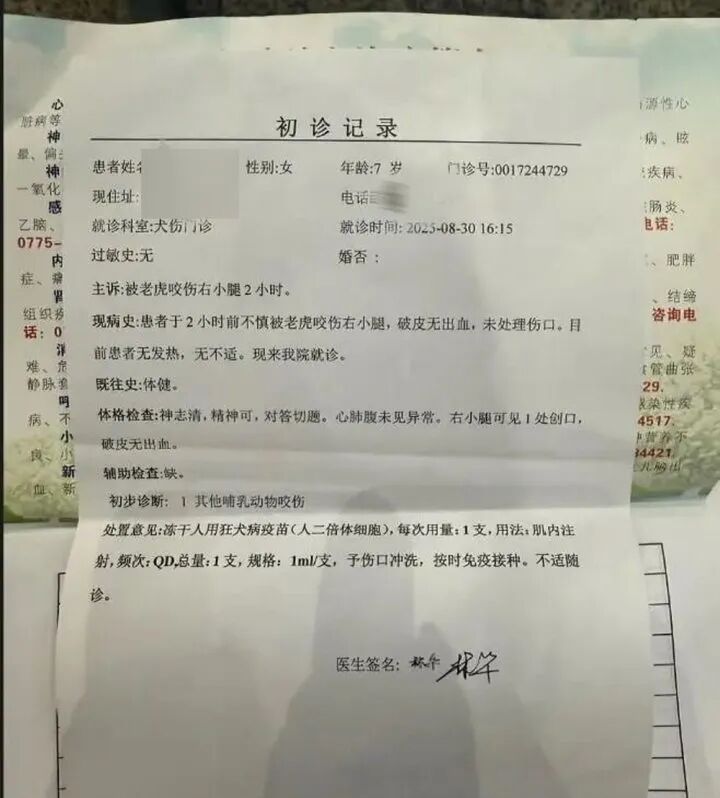 初诊记录
患者姓名 性别:女 年龄:7 岁 门诊号:0017244729
现住址: 电话
就诊科室:犬伤门诊 就诊时间: 2025-08-30 16:15
过敏史:无 婚否：
主诉:被老虎咬伤右小腿 2 小时。
现病史:患者于 2 小时前不慎被老虎咬伤右小腿，破皮无出血，未处理伤口。目
前患者无发热，无不适。现来我院就诊。
既往史:体健。
体格检查:神志清，精神可，对答切题。心肺腹未见异常。右小腿可见 1 处创口，
破皮无出血。
辅助检查:缺。
初步诊断： 1 其他哺乳动物咬伤
处置意见:冻干人用狂犬病疫苗(人二倍体细胞)，每次用量:1 支，用法:肌内注
射，频次:QD,总量:1 支，规格：1ml/支，予伤口冲洗，按时免疫接种。不适随
诊。
医生签名: 林华 林华
心
脏病等
神
晕、偏
神
一氧化
感
乙脑、
0775-
内
症、
组织
话：0
难、
静脉
病、不
小
良、小
新
血、新
源性心
病、眩
疾病、
肠炎、
电话:
、肥胖
、结缔
咨询电
见、疑
管曲张
29.
感染性疾
4517.
种营养不
84421.